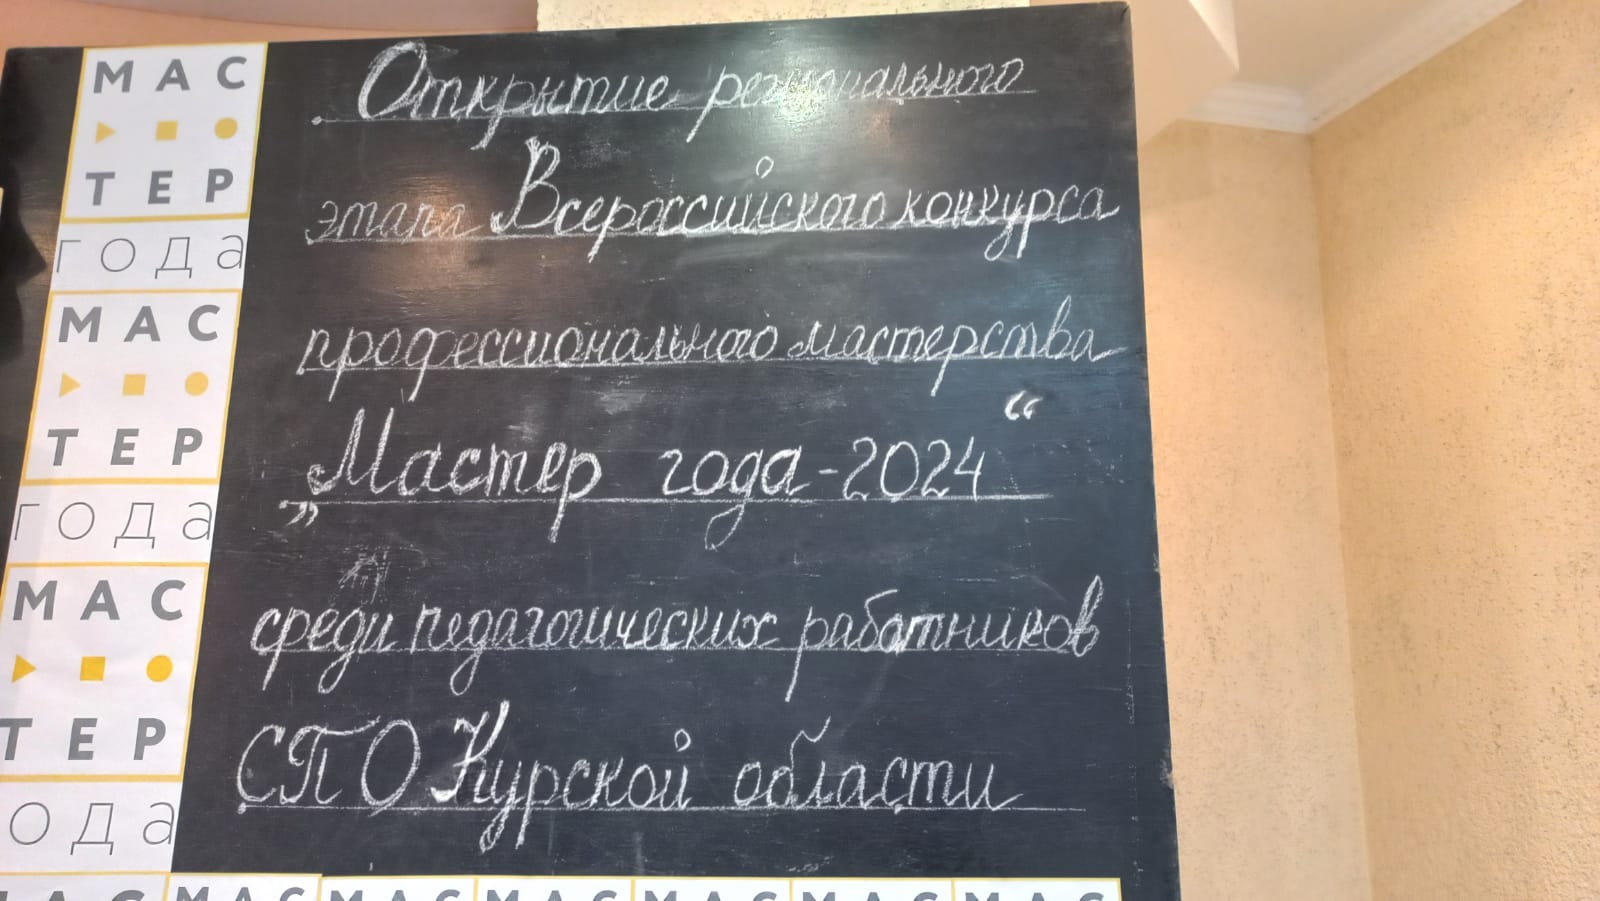 МАС
ТЕР
года
МАС
ТЕР
года
МАС
ТЕР
ода
Открытие регионального
этапа Всероссийского конкурса
профессионального мастерства
„Мастер года-2024“
среди педагогических работников
СПО Курской области
МАС МАС МАС МАС МАС МАС